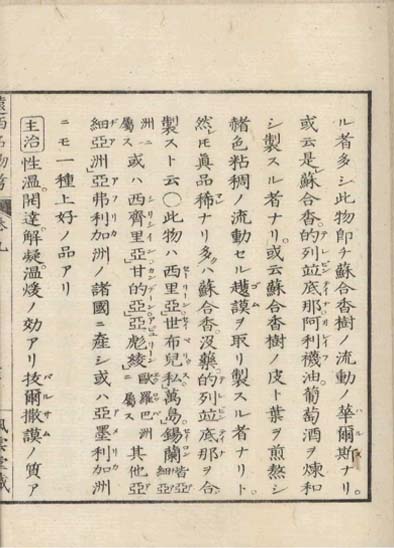 ル者多シ此物即チ蘇合香樹ノ流動ノ華爾斯ナリ。
或云是「蘇合香」的列並底那阿利襪油葡萄酒ヲ煉和
シ製スル者ナリ。或云蘇合香樹ノ皮ト葉ヲ煎熬シ
赭色粘稠ノ流動セルヲ取リ製スル者ナリト。
然レ𪜈眞品稀ナリ。多クハ蘇合香。没藥。的列並底那ヲ合
製スト云○此物ハ西里亞」世布兒私」萬島」錫蘭皆亞細亞
洲ニ屬ス或ハ西齊里亞」甘的亞」亞彪綾」歐羅巴洲ニ屬ス其他亞
細亞洲」亞弗利加洲ノ諸國ニ産シ或ハ亞墨利加洲
ニモ一種上好ノ品アリ
主治性溫。開達。解凝。溫煖ノ効アリ拔爾撒謨ノ質ア
遠西名物考 卷九 風雲堂藏